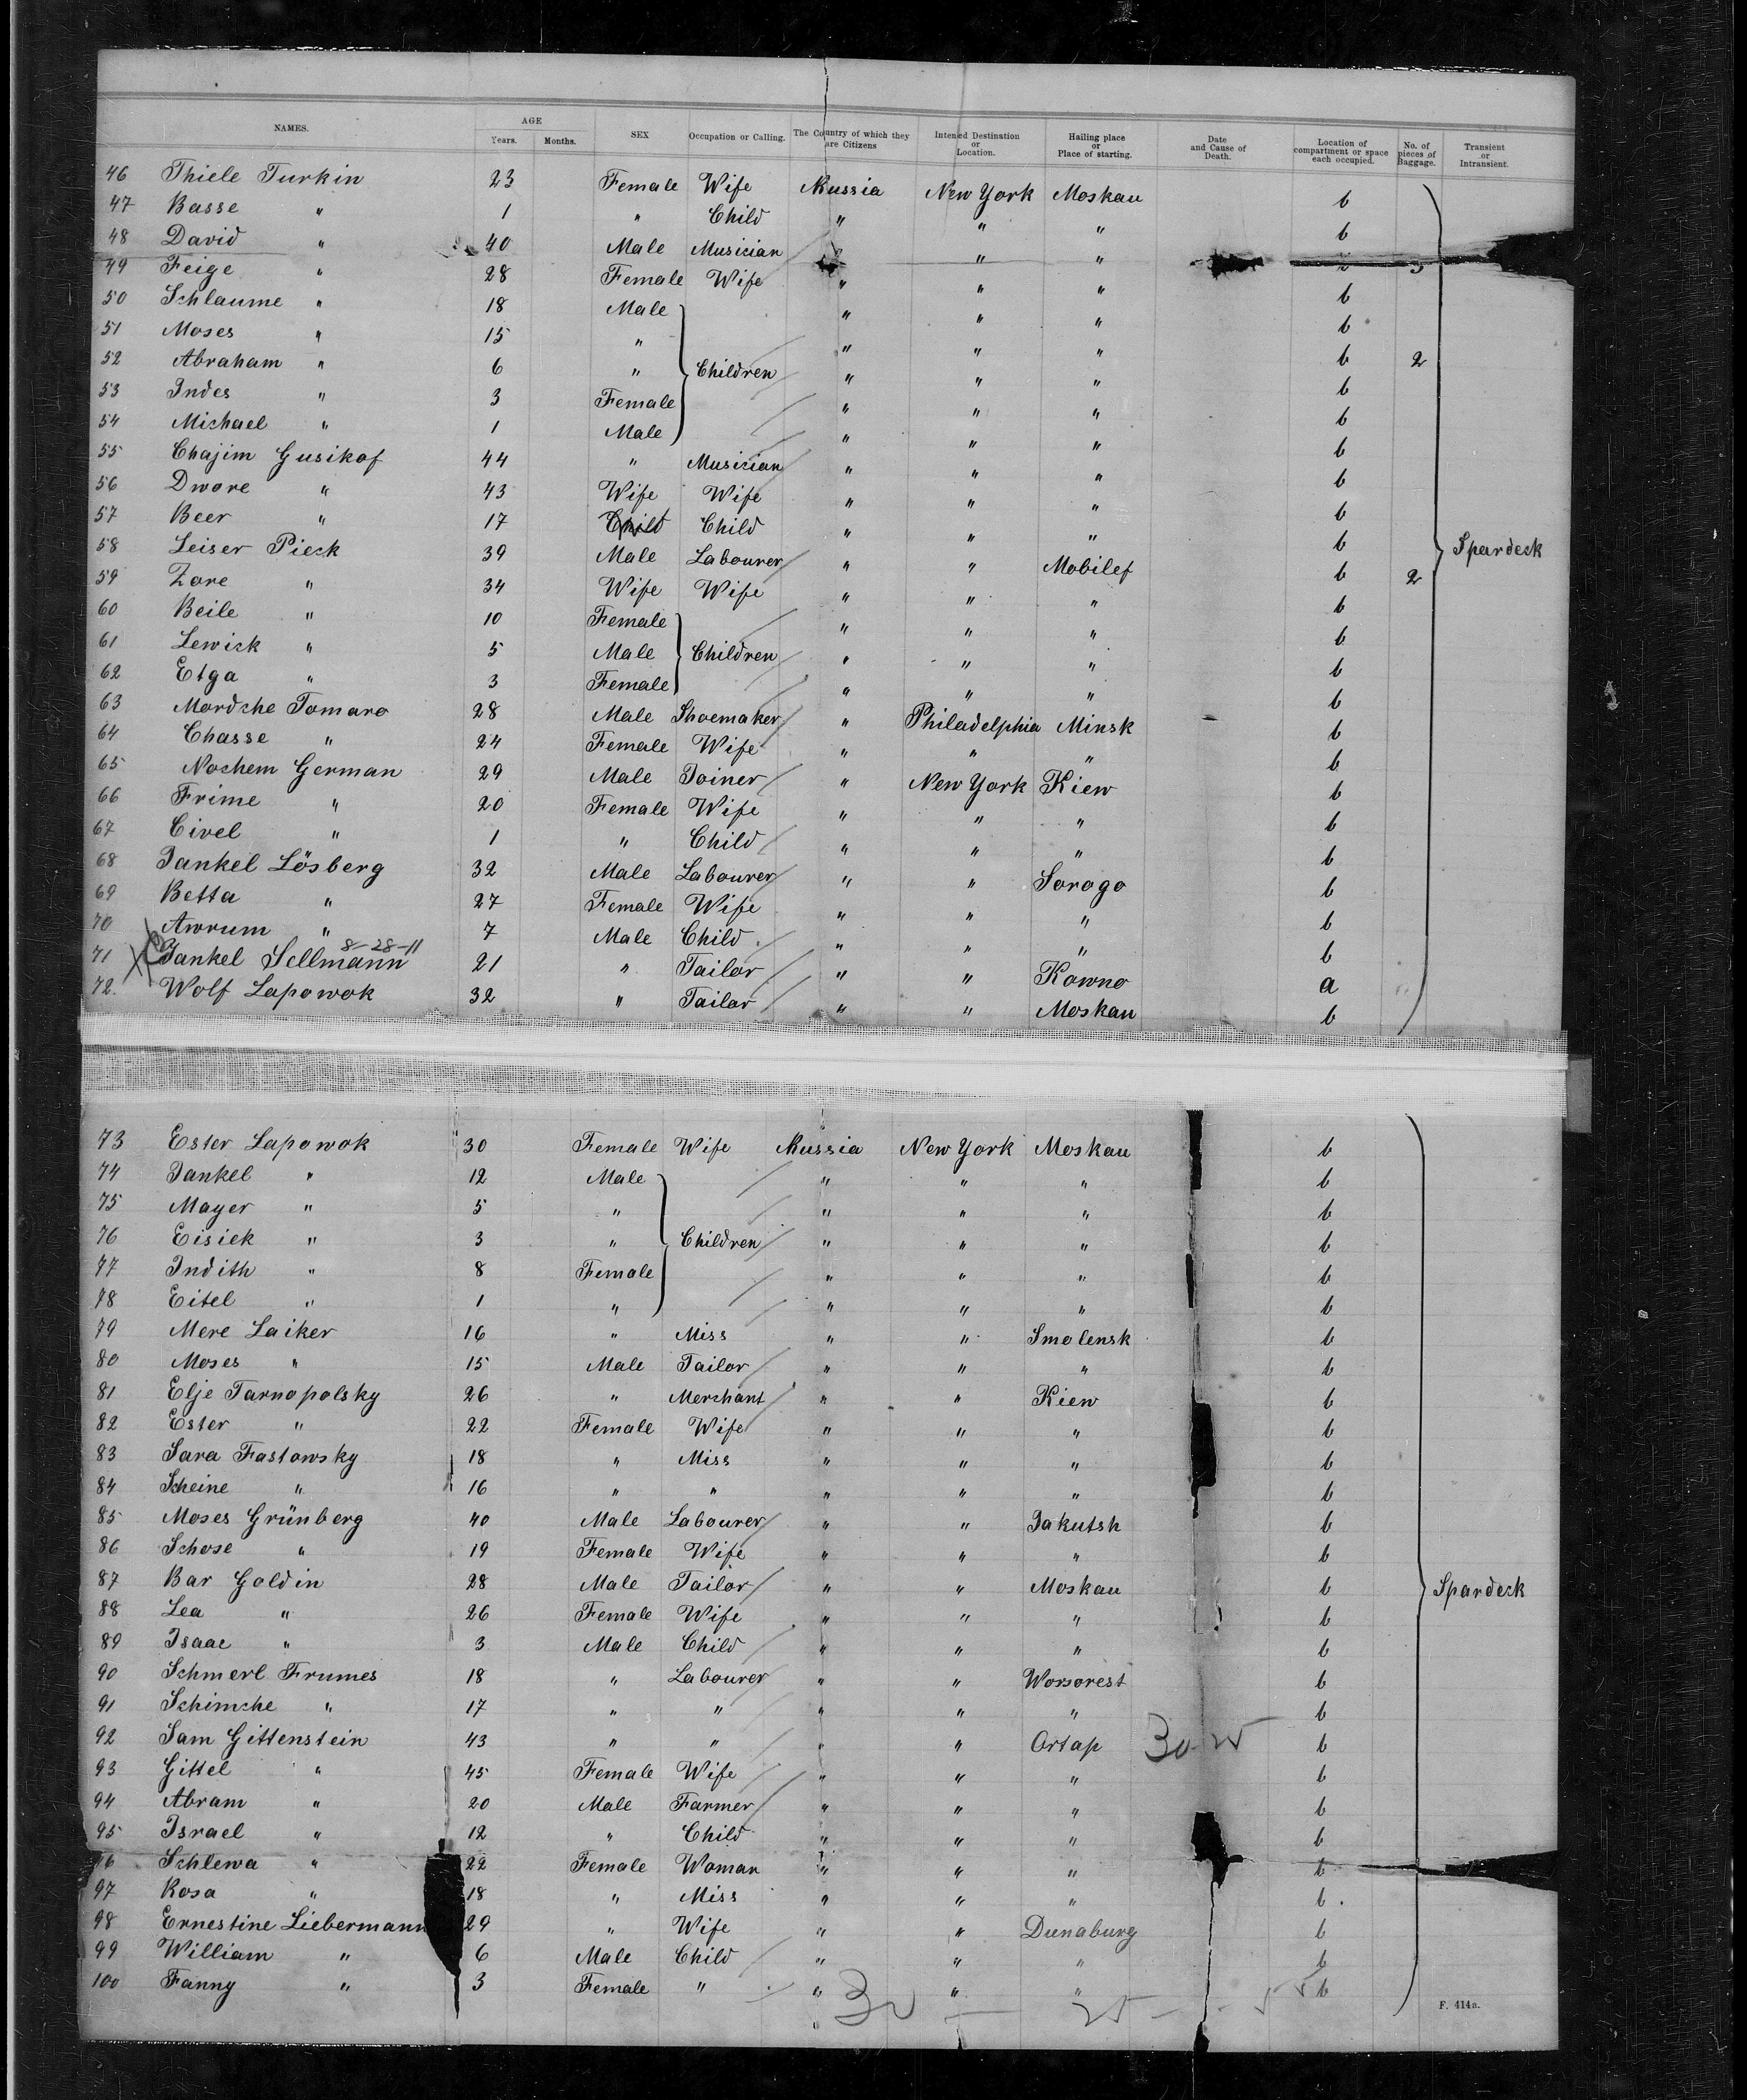 NAMES. AGE Years. Months. SEX Occupation or Calling. The Country of which they are Citizens Intened Destination or Location. Hailing place or Place of starting. Date and Cause of Death. Location of compartment or space each occupied. No. of pieces of Baggage. Transient or Intransient.
46 Thiele Turkin 23 Female Wife Russia New York Moskau b
47 Basse " 1 " Child " " " b
48 David " 40 Male Musician " " "
49 Feige " 28 Female Wife " " " b
50 Schlaume " 18 Male " " " b
51 Moses " 15 " " " " b 2
52 Abraham " 6 " Children " " " b
53 Indes " 3 Female " " " b
54 Michael " 1 Male " " " b
55 Chajim Gusikof 44 " Musician " " " b
56 Dwore " 43 Wife Wife " " " b
57 Beer " 17 Child Child " " " b
58 Leiser Pieck 39 Male Labourer " " Mobilef b 2 Spardeck
59 Zore " 34 Wife Wife " " " b
60 Beile " 10 Female " " " b
61 Lewick " 5 Male Children " " " b
62 Etga " 3 Female " " " b
63 Mordche Tomaro 28 Male Shoemaker " Philadelphia Minsk b
64 Chasse " 24 Female Wife " " " b
65 Nochem German 29 Male Joiner " New York Kiew b
66 Frime " 20 Female Wife " " " b
67 Civel " 1 " Child " " " b
68 Jankel Lösberg 32 Male Labourer " " Sorogo b
69 Betta " 27 Female Wife " " " b
70 Awrum " 7 Male Child " " " b
8-28-11
71 Jankel Sellmann 21 " Tailor " " Kowno a
72. Wolf Lapowok 32 " Tailor " " Moskau b
73 Ester Lapowok 30 Female Wife Russia New York Moskau b
74 Jankel " 12 Male " " " b
75 Mayer " 5 " " " " b
76 Eisick " 3 " Children " " " b
77 Indith " 8 Female " " " b
78 Eitel " 1 " " " " b
79 Mere Laiker 16 " Miss " " Smolensk b
80 Moses " 15 Male Tailor " " " b
81 Elje Tarnopolsky 26 " Merchant " " Kiew b
82 Ester " 22 Female Wife " " " b
83 Sara Fastowsky 18 " Miss " " " b
84 Scheine " 16 " " " " " b
85 Moses Grünberg 40 Male Labourer " " Jakutsh b
86 Schose " 19 Female Wife " " " b
87 Bar Goldin 28 Male Tailor " " Moskau b Spardeck
88 Lea " 26 Female Wife " " " b
89 Isaac " 3 Male Child " " " b
90 Schmerl Frumes 18 " Labourer " " Worsorest b
91 Schimche " 17 " " " " " b
92 Sam Gittenstein 43 " " " " Ortap b
93 Gittel " 45 Female Wife " " " b
94 Abram " 20 Male Farmer " " " b
95 Israel " 12 " Child " " " b
96 Schlewa " 22 Female Woman " " " b
97 Rosa " 18 " Miss " " " b
98 Ernestine Liebermann 29 " Wife " " Dunaburg b
99 William " 6 Male Child " " " b
100 Fanny " 3 Female " " " " b
F. 414a.